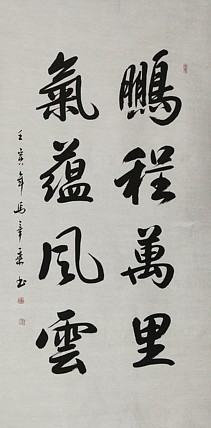 鵬程萬里
氣蘊風雲
壬寅年馬幸乘书